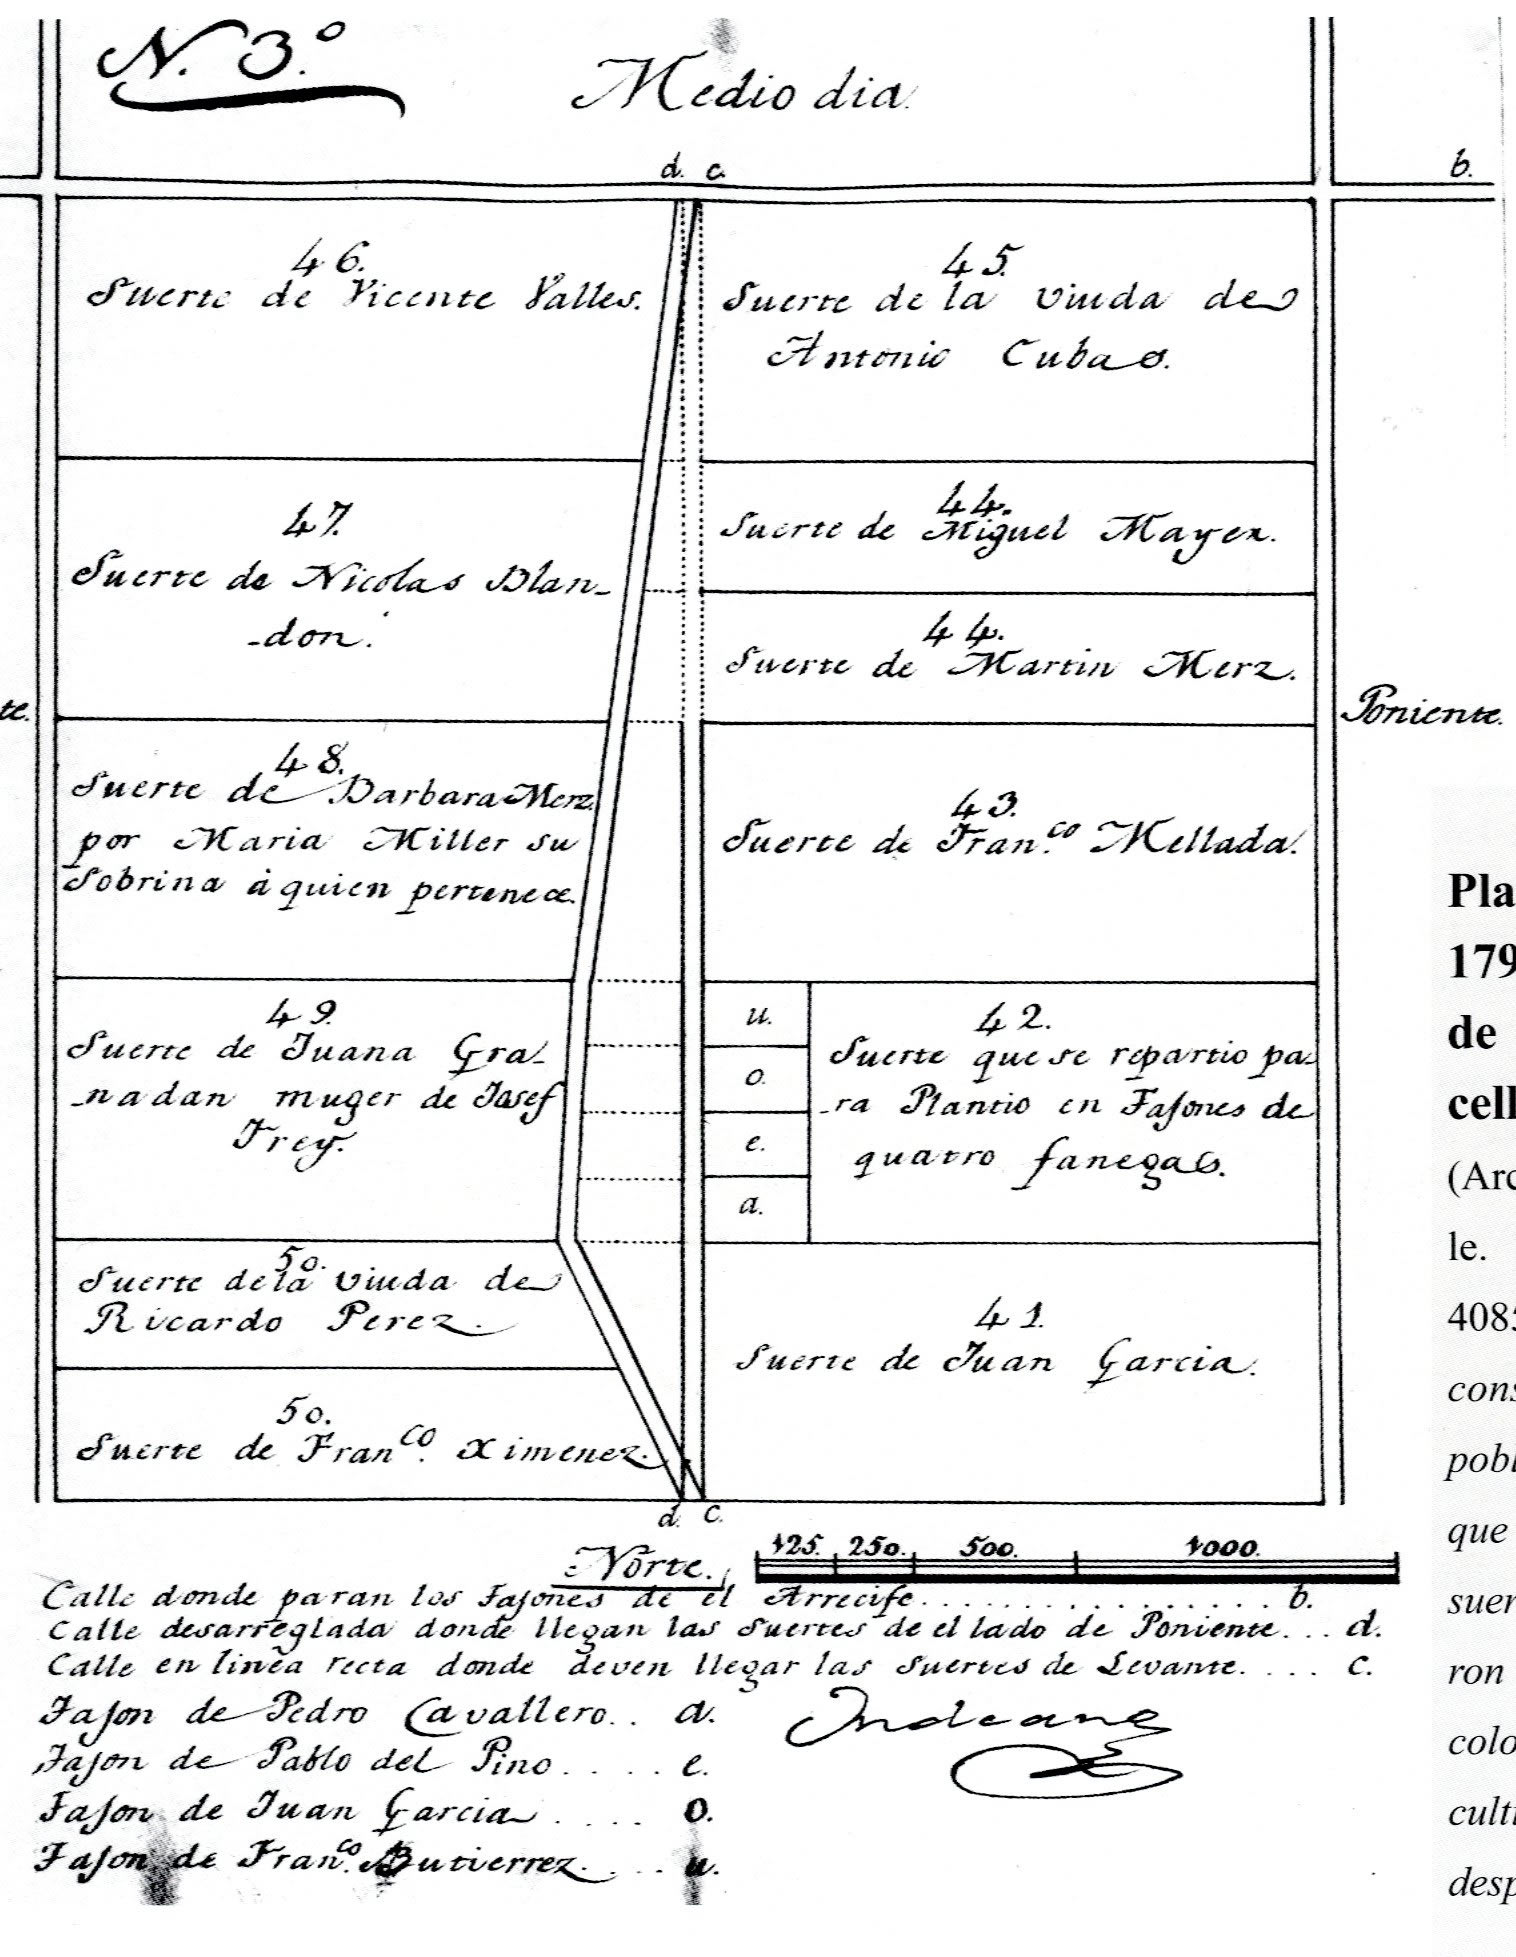 N. 3.º
Medio dia.
d. c.
b.
46.
Suerte de Vicente Valles.
45.
Suerte de la viuda de
Antonio Cubas.
47.
Suerte de Nicolas Blan-
-don.
44.
Suerte de Miguel Mayer.
44.
Suerte de Martin Merz.
te.
Poniente.
48.
Suerte de Barbara Merz
por Maria Miller su
Sobrina á quien pertenece.
43.
Suerte de Fran.co Mellada.
49.
Suerte de Juana Gra-
-nadan muger de Josef
Frey.
u.
o.
e.
a.
42.
Suerte que se repartio pa-
-ra Plantio en Fajones de
quatro fanegas.
50.
Suerte de la viuda de
Ricardo Perez.
50.
Suerte de Fran.co Ximenez.
41.
Suerte de Juan Garcia.
d. C.
Norte.
125. 250. 500. 1000.
Calle donde paran los Fajones de el Arrecife................ b.
Calle desarreglada donde llegan las Suertes de el lado de Poniente... d.
Calle en linea recta donde deven llegar las Suertes de Levante..... c.
Fajon de Pedro Cavallero.. a.
Fajon de Pablo del Pino..... e.
Fajon de Juan Garcia..... o.
Fajon de Fran.co Butierrez.... u.
Pla
179
de
cell
(Arc
le.
4085
cons
pobl
que
suer
ron
colo
culti
desp